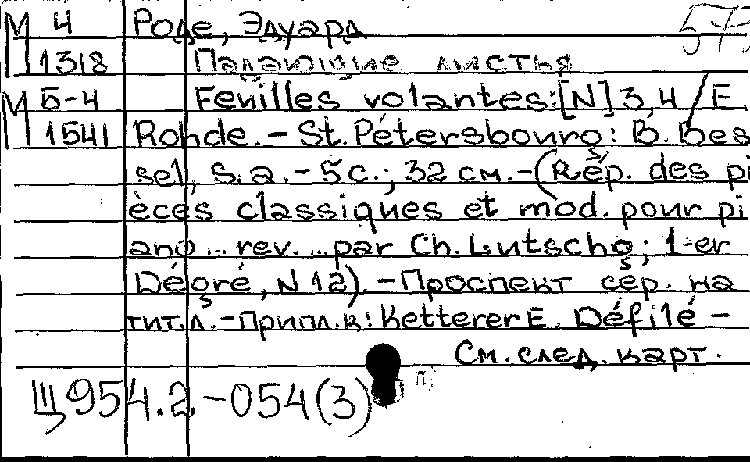 М 4 Роде, Эдуард 573
1318 Падающие листья
М Б-4 Feuilles volantes: [N] 3, 4 / E.
1541 Rohde. – St. Pétersbourg: B. Bes
sel, s. a. – 5 с.; 32 см. – (Rép. des pi
èces classiques et mod. pour pi
ano ... rev. ... par Ch. Lutschg; 1-er
Dégré, N 12). – Проспект сер. на
тит. л. – Припл. к: Ketterer E. Défilé –
См. след. карт.
Щ954.2.-054(3)